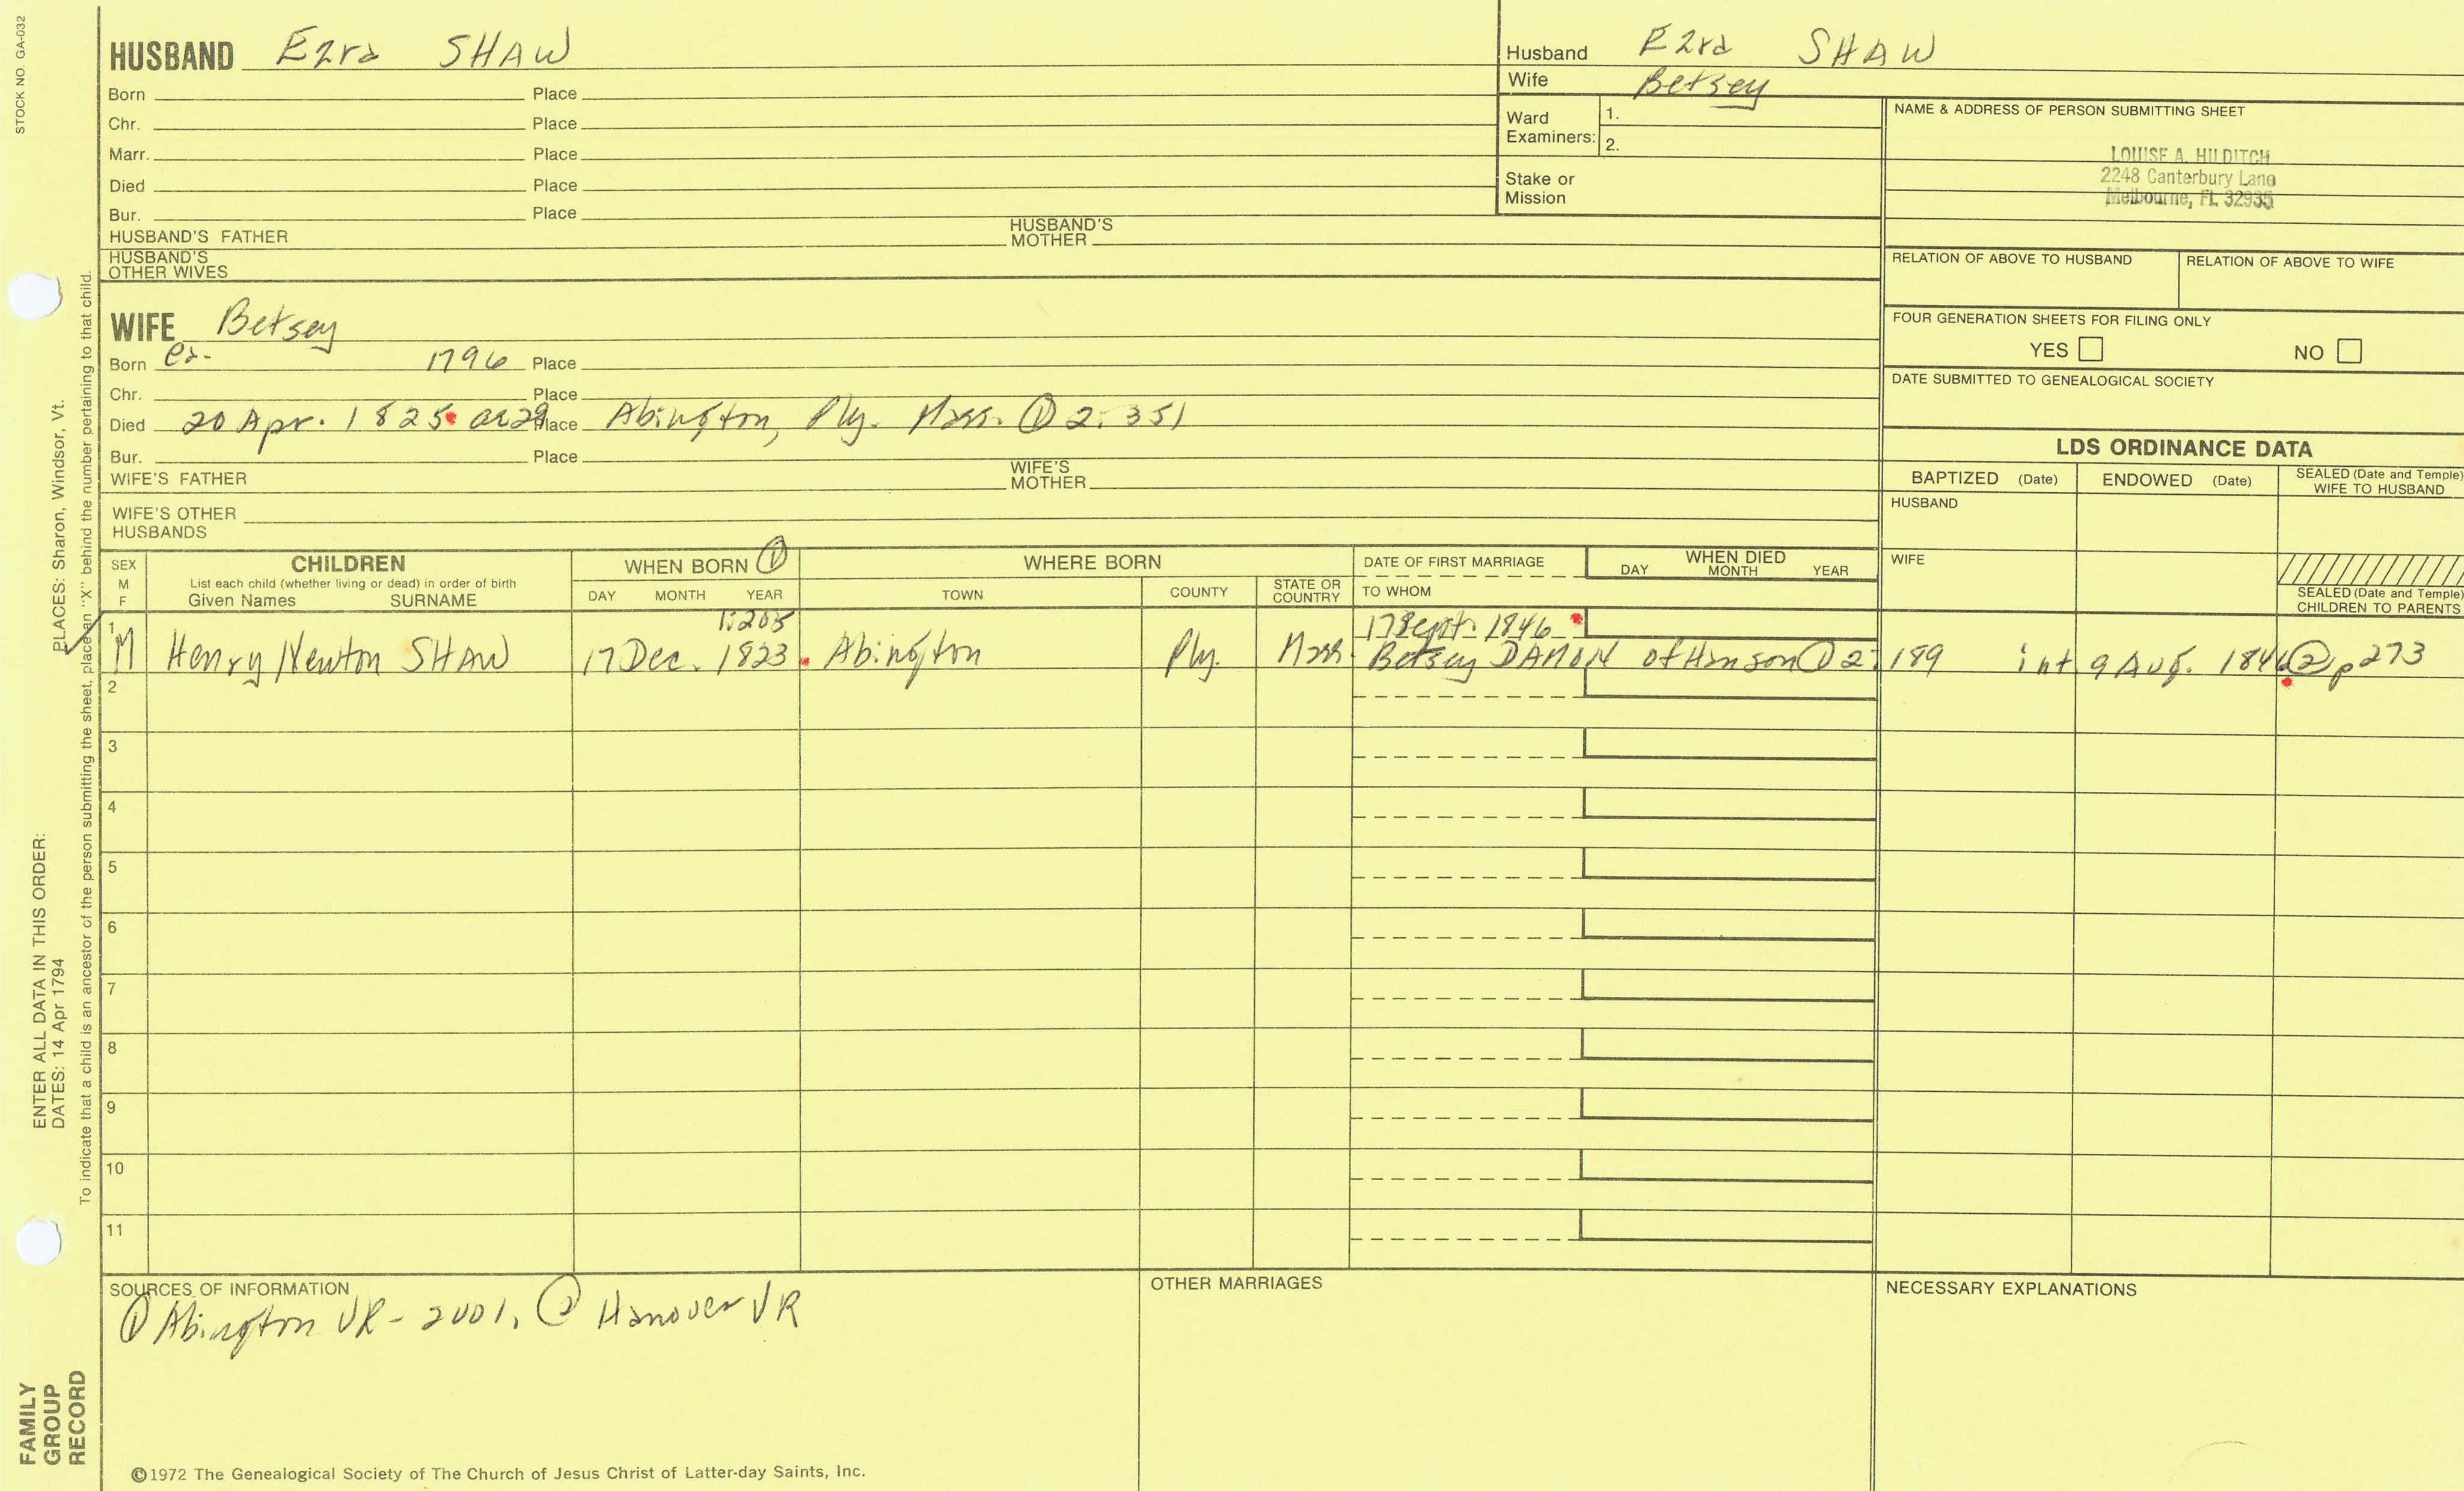 STOCK NO GA-032
HUSBAND Ezra SHAW
Born Place
Chr. Place
Marr. Place
Died Place
Bur. Place
HUSBAND'S FATHER HUSBAND'S MOTHER
HUSBAND'S OTHER WIVES
Husband Ezra SHAW
Wife Betsey
Ward Examiners: 1.
2.
Stake or Mission
NAME & ADDRESS OF PERSON SUBMITTING SHEET
LOUISE A. HILDITCH
2248 Canterbury Lane
Melbourne, FL 32935
RELATION OF ABOVE TO HUSBAND RELATION OF ABOVE TO WIFE
FOUR GENERATION SHEETS FOR FILING ONLY
YES NO
DATE SUBMITTED TO GENEALOGICAL SOCIETY
WIFE Betsey
Born ca. 1796 Place
Chr. Place
Died 20 Apr. 1825 ae 29 Place Abington, Ply. Mass. ① 2:351
Bur. Place
WIFE'S FATHER WIFE'S MOTHER
WIFE'S OTHER HUSBANDS
LDS ORDINANCE DATA
BAPTIZED (Date) ENDOWED (Date) SEALED (Date and Temple) WIFE TO HUSBAND
HUSBAND
WIFE
SEALED (Date and Temple) CHILDREN TO PARENTS
SEX M F
CHILDREN
List each child (whether living or dead) in order of birth
Given Names SURNAME
WHEN BORN ①
DAY MONTH YEAR
WHERE BORN
TOWN COUNTY STATE OR COUNTRY
DATE OF FIRST MARRIAGE
TO WHOM
WHEN DIED
DAY MONTH YEAR
1:205 17 Sept. 1846
1 M Henry Newton SHAW 17 Dec. 1823 Abington Ply. Mass. Betsey DAMON of Hanson ① 2:189 int. 9 Aug. 1846 ② p273
2
3
4
5
6
7
8
9
10
11
SOURCES OF INFORMATION
① Abington VR - 2 vol, ② Hanover VR
OTHER MARRIAGES
NECESSARY EXPLANATIONS
©1972 The Genealogical Society of The Church of Jesus Christ of Latter-day Saints, Inc.
ENTER ALL DATA IN THIS ORDER:
DATES: 14 Apr 1794 PLACES: Sharon, Windsor, Vt.
To indicate that a child is an ancestor of the person submitting the sheet, place an "X" behind the number pertaining to that child.
FAMILY
GROUP
RECORD